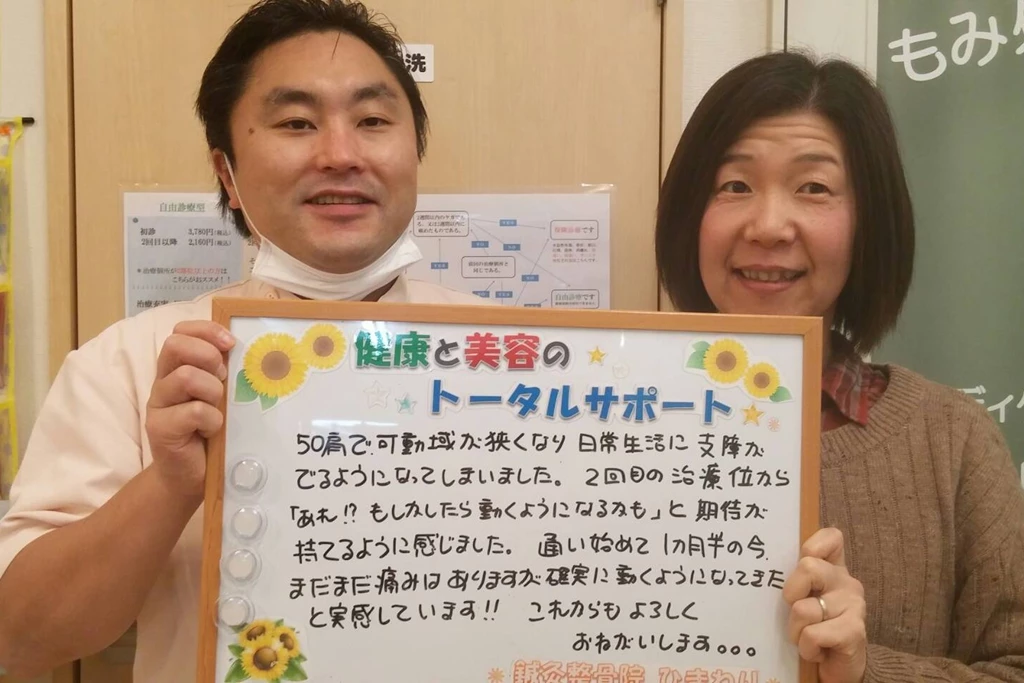 洗
もみ
自由診療
初診 3,780円(税込)
2回目以降 2,160円(税込)
自由診療です
健康と美容の
トータルサポート
50肩で可動域が狭くなり 日常生活に支障が
でるようになってしまいました。2回目の治療位から
「あれ!? もしかしたら動くようになるかも」と期待が
持てるように感じました。 通い始めて1カ月半の今、
まだまだ痛みはありますが確実に動くようになってきた
と実感しています!! これからもよろしく
おねがいします。。。
鍼灸整骨院 ひまわり
ディ